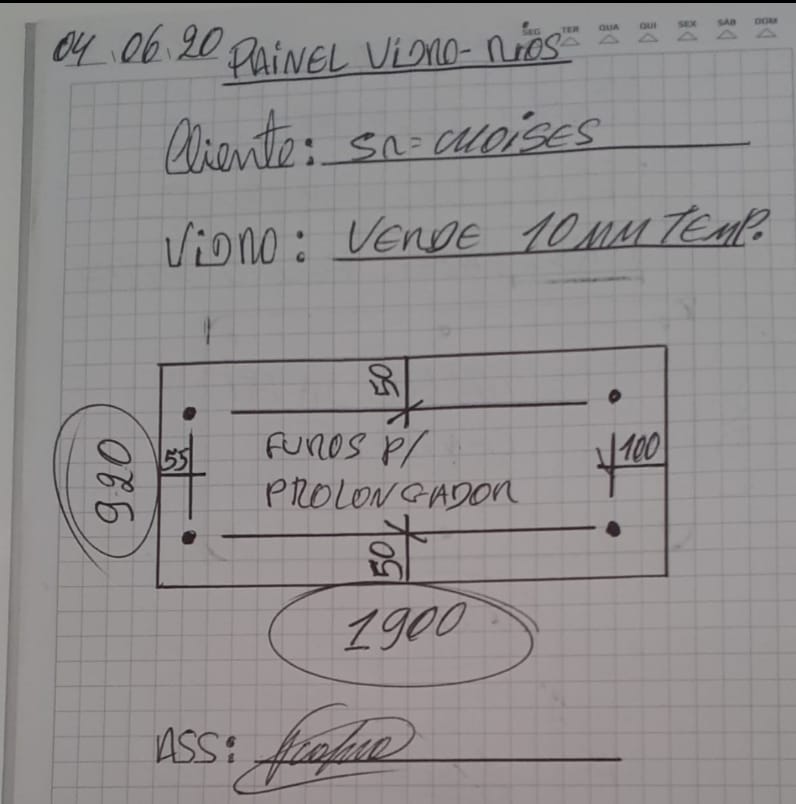 SEG TER QUA QUI SEX SAB DOM
04.06.20 PAINEL VIDRO-RIOS
Cliente: SR= MOISES
VIDRO: VERDE 10 MM TEMP.
50
55 FUROS P/ 100
920
PROLONGADOR
50
1900
ASS: